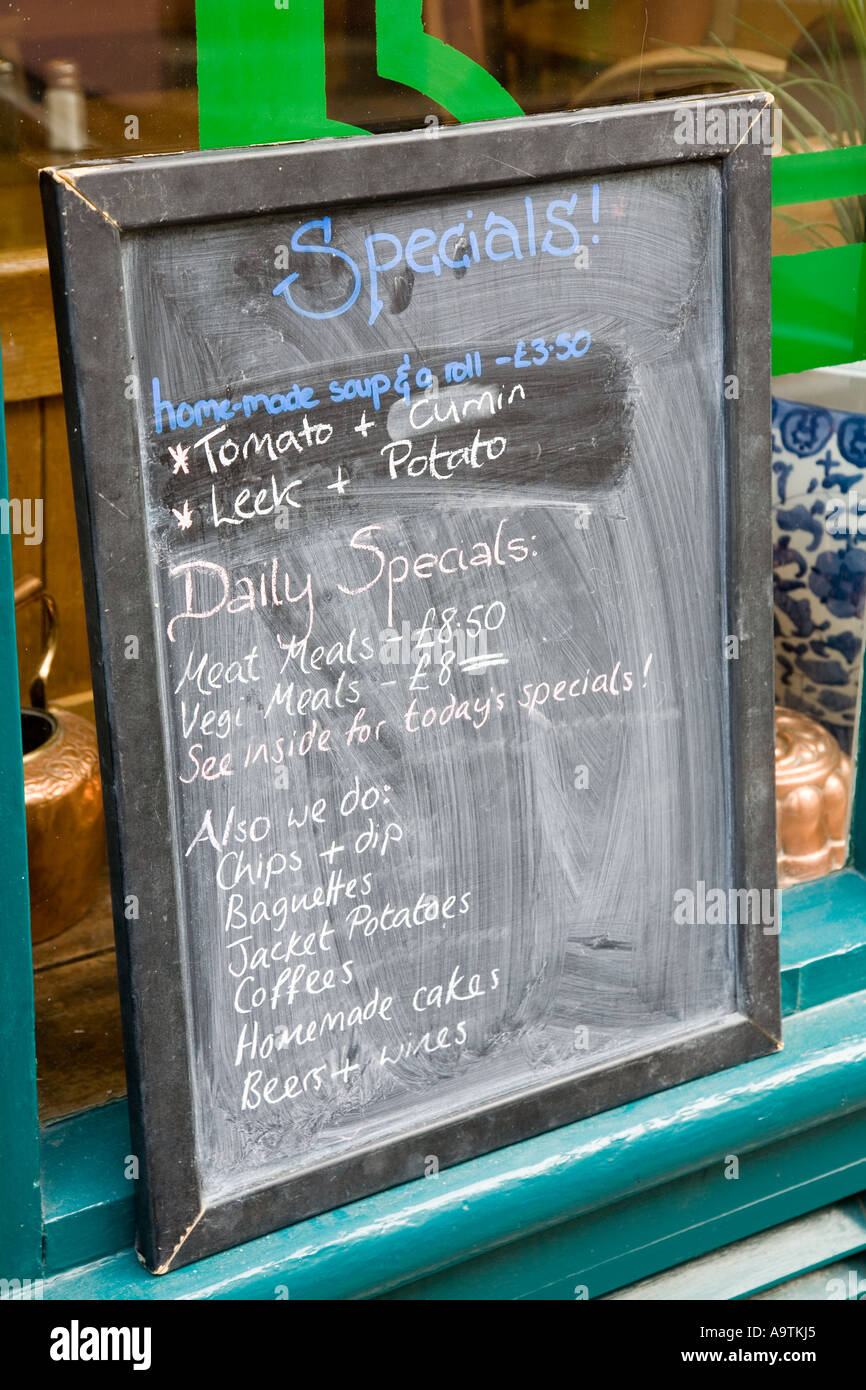 Specials!
home-made soup & a roll - £3.50
* Tomato + Cumin
* Leek + Potato
Daily Specials:
Meat Meals - £8.50
Vegi Meals - £8
See inside for today's specials!
Also we do:
Chips + dip
Baguettes
Jacket Potatoes
Coffees
Homemade cakes
Beers + wines
alamy
alamy
Image ID: A9TKJ5
www.alamy.com